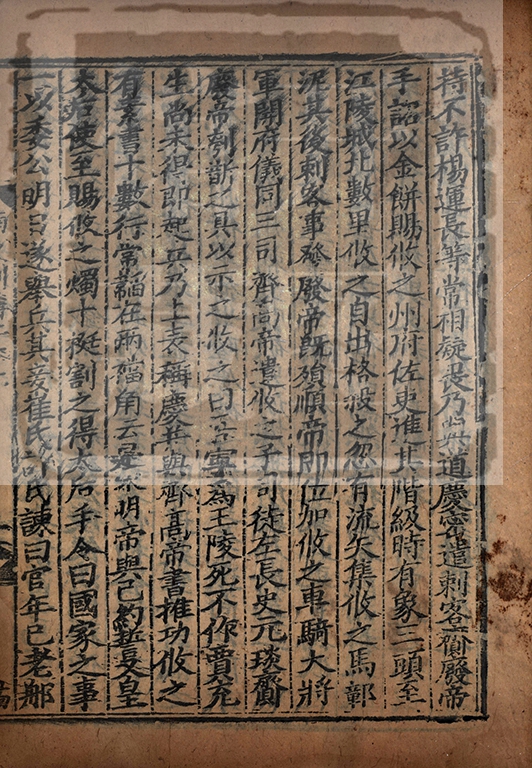 持不許楊運長等常相疑畏乃與道慶密遣刺客齎廢帝
手詔以金餅賜攸之州府佐吏進其階級時有象三頭至
江陵城北數里攸之自出格殺之忽有流矢集攸之馬鄣
泥其後刺客事發廢帝既殞順帝即位加攸之車騎大將
軍開府儀同三司齊高帝遣攸之子司徒左長史元琰齎
廢帝刳斮之具以示之攸之曰吾寧爲王陵死不作賈充
生尚未得即起兵乃上表稱慶并與齊髙帝書推功攸之
有素書十數行常韜在兩襠角云是宋明帝與己約誓又皇
太后使至賜攸之燭十挺割之得太后手令曰國家之事
一以委公明日遂舉兵其妾崔氏許氏諫曰官年已老那